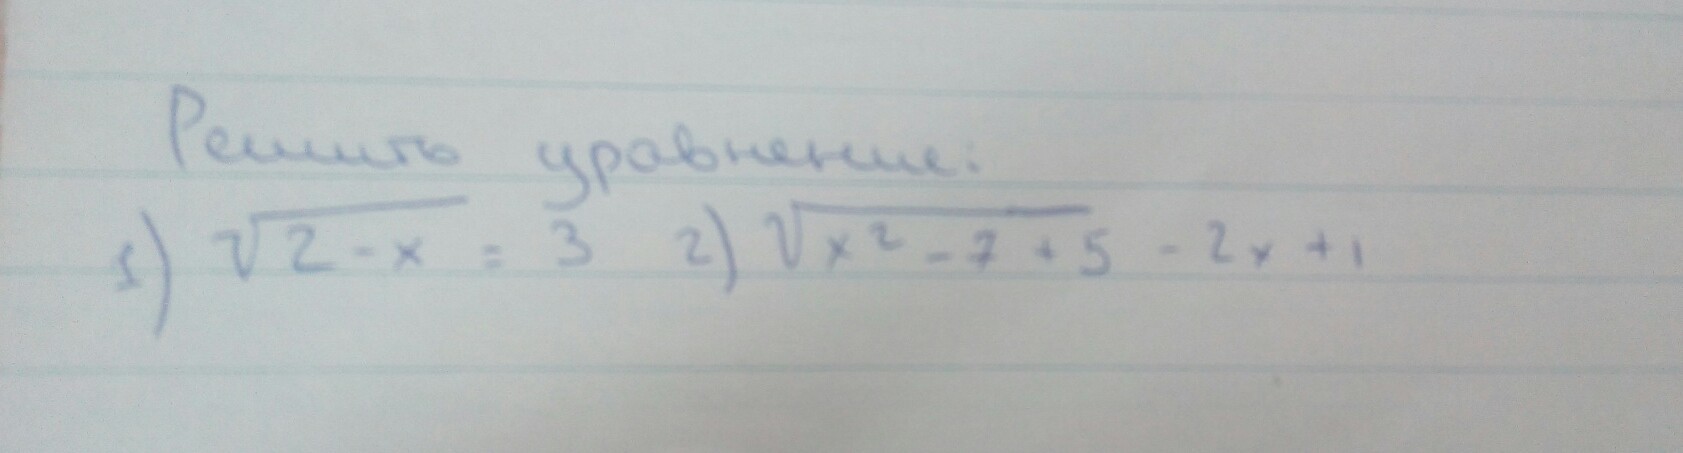 Решить уравнение:
1) √2-x = 3 2) √x² - 7 + 5 - 2x + 1